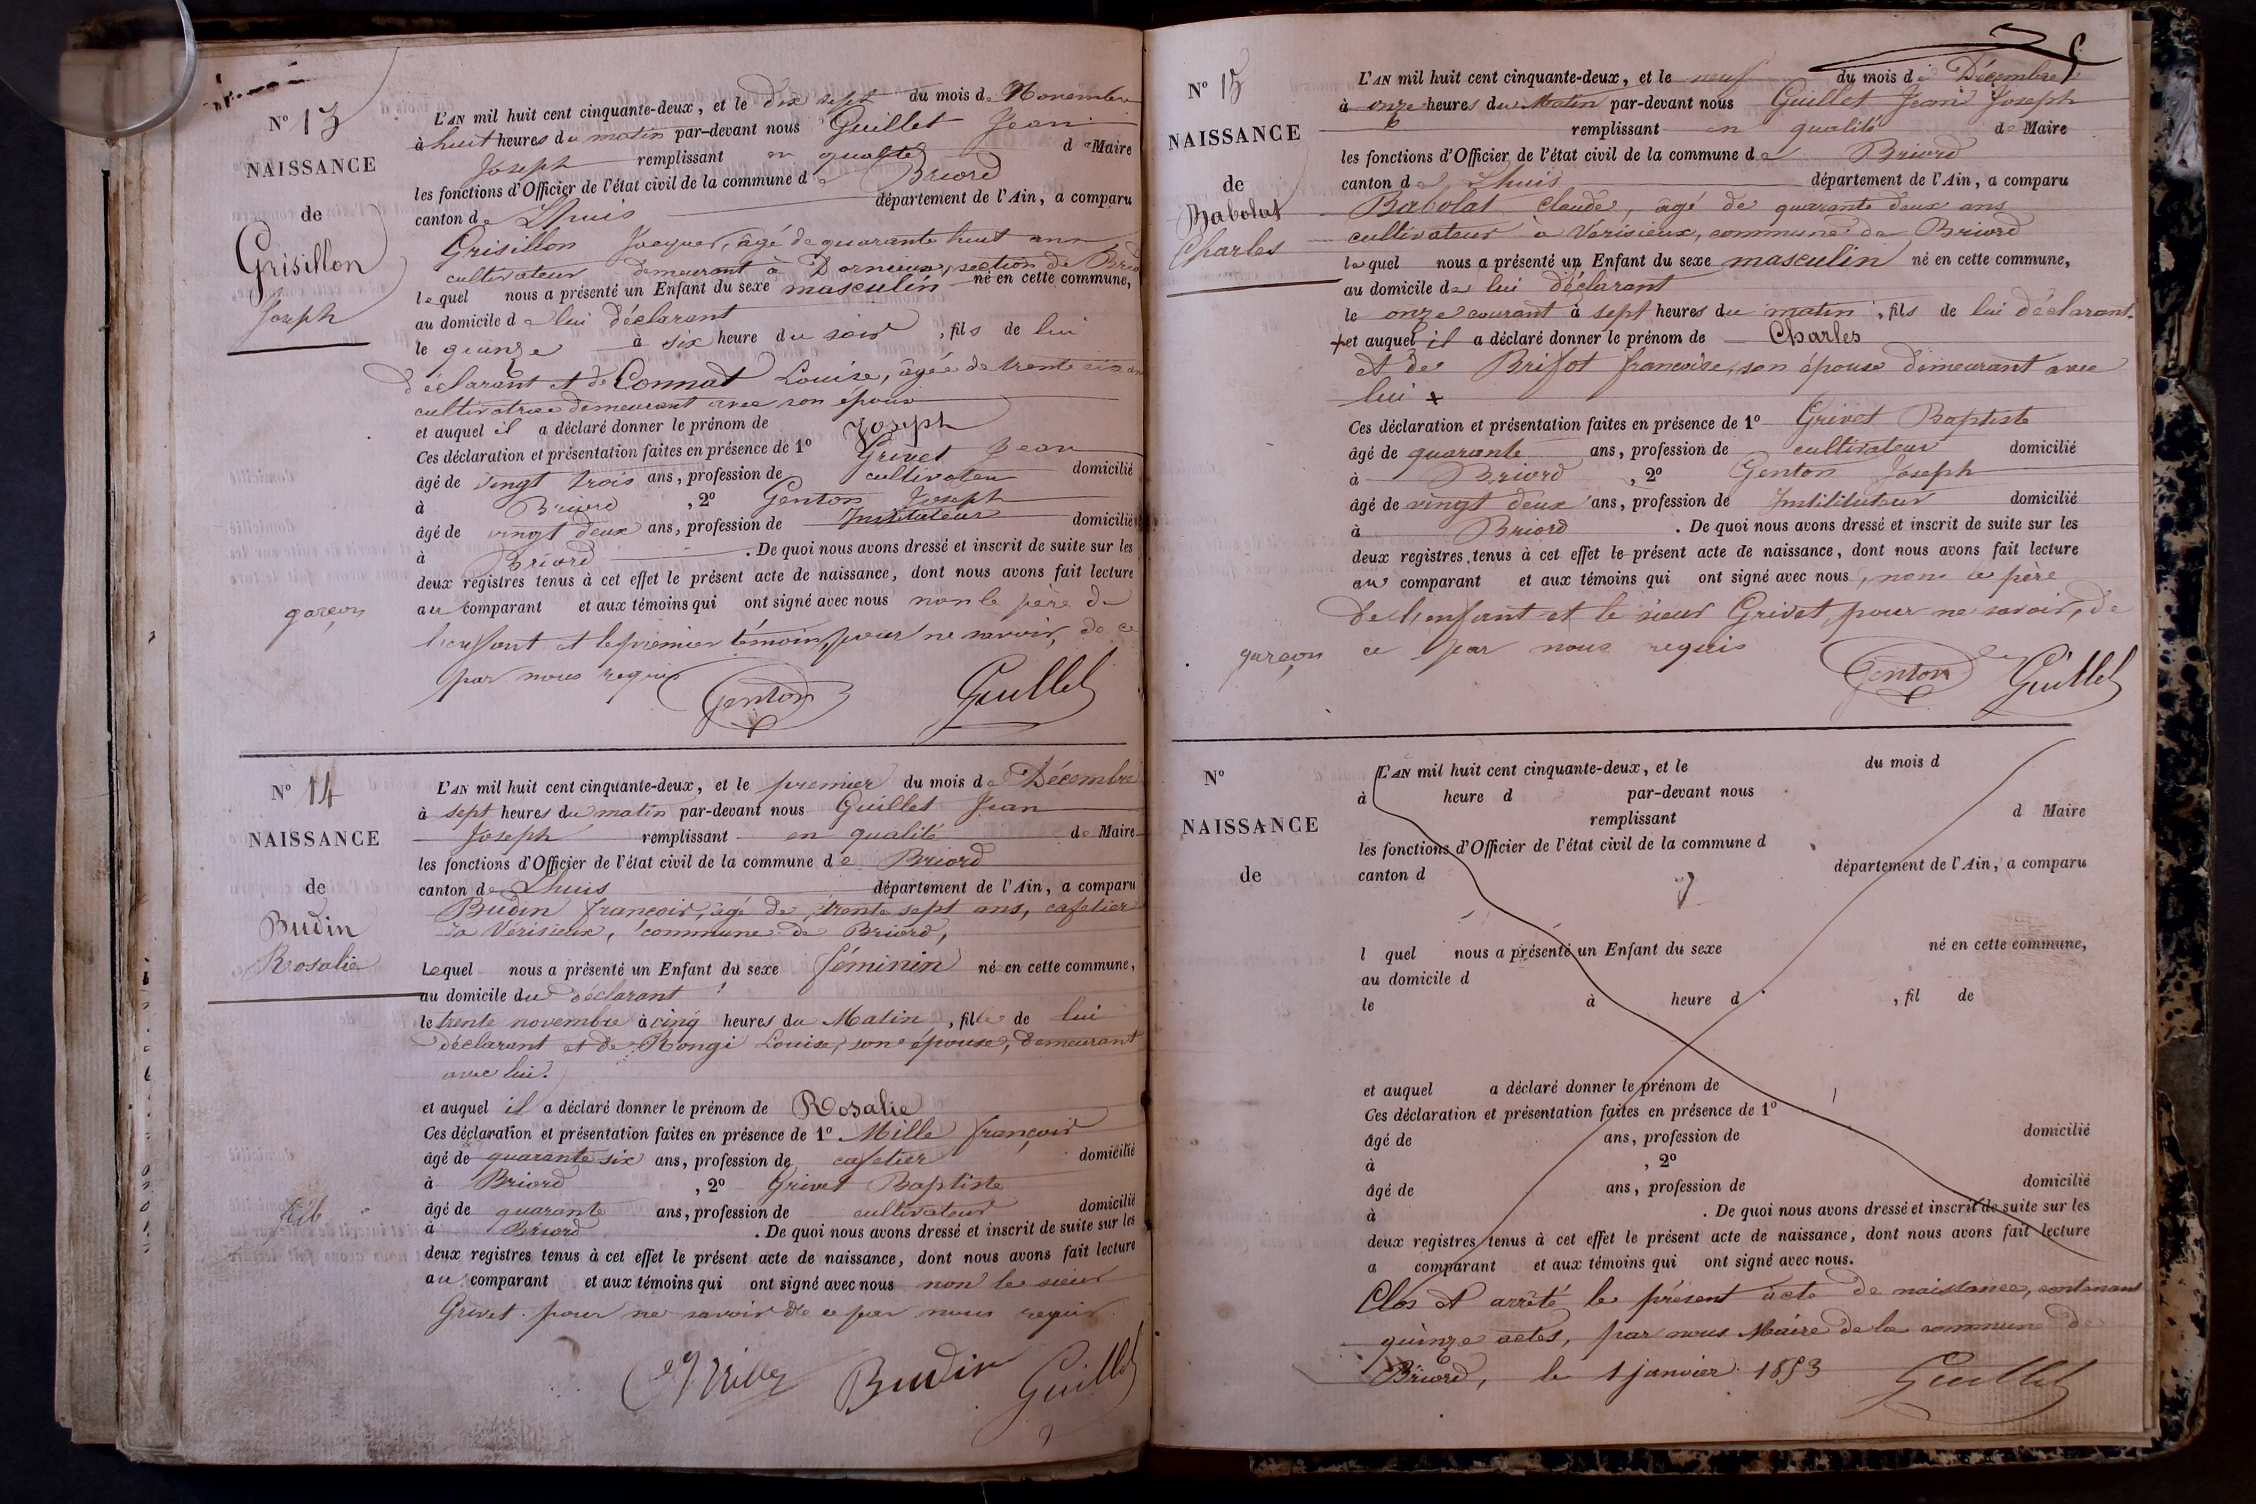 N° 13
NAISSANCE
de
Grisillon
Joseph
garçon
L'AN mil huit cent cinquante-deux, et le dix sept du mois de Novembre
à huit heures du matin par-devant nous Guillet Jean
Joseph remplissant en qualité de Maire
les fonctions d'Officier de l'état civil de la commune de Briord
canton de Lhuis département de l'Ain, a comparu
Grisillon Jacques, âgé de quarante huit ans
cultivateur demeurant à Dornieux, section de Briord
lequel nous a présenté un Enfant du sexe masculin né en cette commune,
au domicile de lui déclarant
le quinze à six heure du soir, fils de lui
déclarant et de Connat Louise, âgée de trente six ans
cultivatrice demeurant avec son époux
et auquel il a déclaré donner le prénom de Joseph
Ces déclaration et présentation faites en présence de 1° Grivet Jean
âgé de vingt trois ans, profession de cultivateur domicilié
à Briord, 2° Genton Joseph
âgé de vingt deux ans, profession de Instituteur domicilié
à Briord. De quoi nous avons dressé et inscrit de suite sur les
deux registres tenus à cet effet le présent acte de naissance, dont nous avons fait lecture
au comparant et aux témoins qui ont signé avec nous non le père de
l'enfant et le premier témoin, pour ne savoir, de ce
par nous requis
Genton Guillet
N° 14
NAISSANCE
de
Budin
Rosalie
L'AN mil huit cent cinquante-deux, et le premier du mois de Décembre
à sept heures du matin par-devant nous Guillet Jean
Joseph remplissant en qualité de Maire
les fonctions d'Officier de l'état civil de la commune de Briord
canton de Lhuis département de l'Ain, a comparu
Budin françois, âgé de trente sept ans, cafetier
à Vérisieux, commune de Briord,
Lequel nous a présenté un Enfant du sexe féminin né en cette commune,
au domicile du déclarant
le trente novembre à cinq heures du Matin, fille de lui
déclarant et de Rongi Louise, son épouse, demeurant
avec lui.
et auquel il a déclaré donner le prénom de Rosalie
Ces déclaration et présentation faites en présence de 1° Mille françois
âgé de quarante six ans, profession de cafetier domicilié
à Briord, 2° Grivet Baptiste
âgé de quarante ans, profession de cultivateur domicilié
à Briord. De quoi nous avons dressé et inscrit de suite sur les
deux registres tenus à cet effet le présent acte de naissance, dont nous avons fait lecture
au comparant et aux témoins qui ont signé avec nous non le sieur
Grivet pour ne savoir de ce par nous requis
Mille Budin Guillet
N° 15
NAISSANCE
de
Babolat
Charles
garçon
L'AN mil huit cent cinquante-deux, et le neuf du mois de Décembre
à onze heures du Matin par-devant nous Guillet Jean Joseph
remplissant en qualité de Maire
les fonctions d'Officier de l'état civil de la commune de Briord
canton de Lhuis département de l'Ain, a comparu
Babolat Claude, âgé de quarante deux ans
cultivateur à Vérisieux, commune de Briord
lequel nous a présenté un Enfant du sexe masculin né en cette commune,
au domicile de lui déclarant
le onze courant à sept heures du matin, fils de lui déclarant.
+ et auquel il a déclaré donner le prénom de Charles
et de Brifot francoise, son épouse demeurant avec
lui +
Ces déclaration et présentation faites en présence de 1° Grivet Baptiste
âgé de quarante ans, profession de cultivateur domicilié
à Briord, 2° Genton Joseph
âgé de vingt deux ans, profession de Instituteur domicilié
à Briord. De quoi nous avons dressé et inscrit de suite sur les
deux registres tenus à cet effet le présent acte de naissance, dont nous avons fait lecture
au comparant et aux témoins qui ont signé avec nous, non le père
de l'enfant et le sieur Grivet, pour ne savoir, de
ce par nous requis
Genton Guillet
N°
NAISSANCE
de
L'AN mil huit cent cinquante-deux, et le du mois d
à heure d par-devant nous
remplissant d Maire
les fonctions d'Officier de l'état civil de la commune d
canton d département de l'Ain, a comparu
l quel nous a présenté un Enfant du sexe né en cette commune,
au domicile d
le à heure d, fil de
et auquel a déclaré donner le prénom de
Ces déclaration et présentation faites en présence de 1°
âgé de ans, profession de domicilié
à, 2°
âgé de ans, profession de domicilié
à. De quoi nous avons dressé et inscrit de suite sur les
deux registres tenus à cet effet le présent acte de naissance, dont nous avons fait lecture
a comparant et aux témoins qui ont signé avec nous.
Clos et arrêté le présent acte de naissance, contenant
quinze actes, par nous Maire de la commune de
Briord, le 1 janvier 1853 Guillet